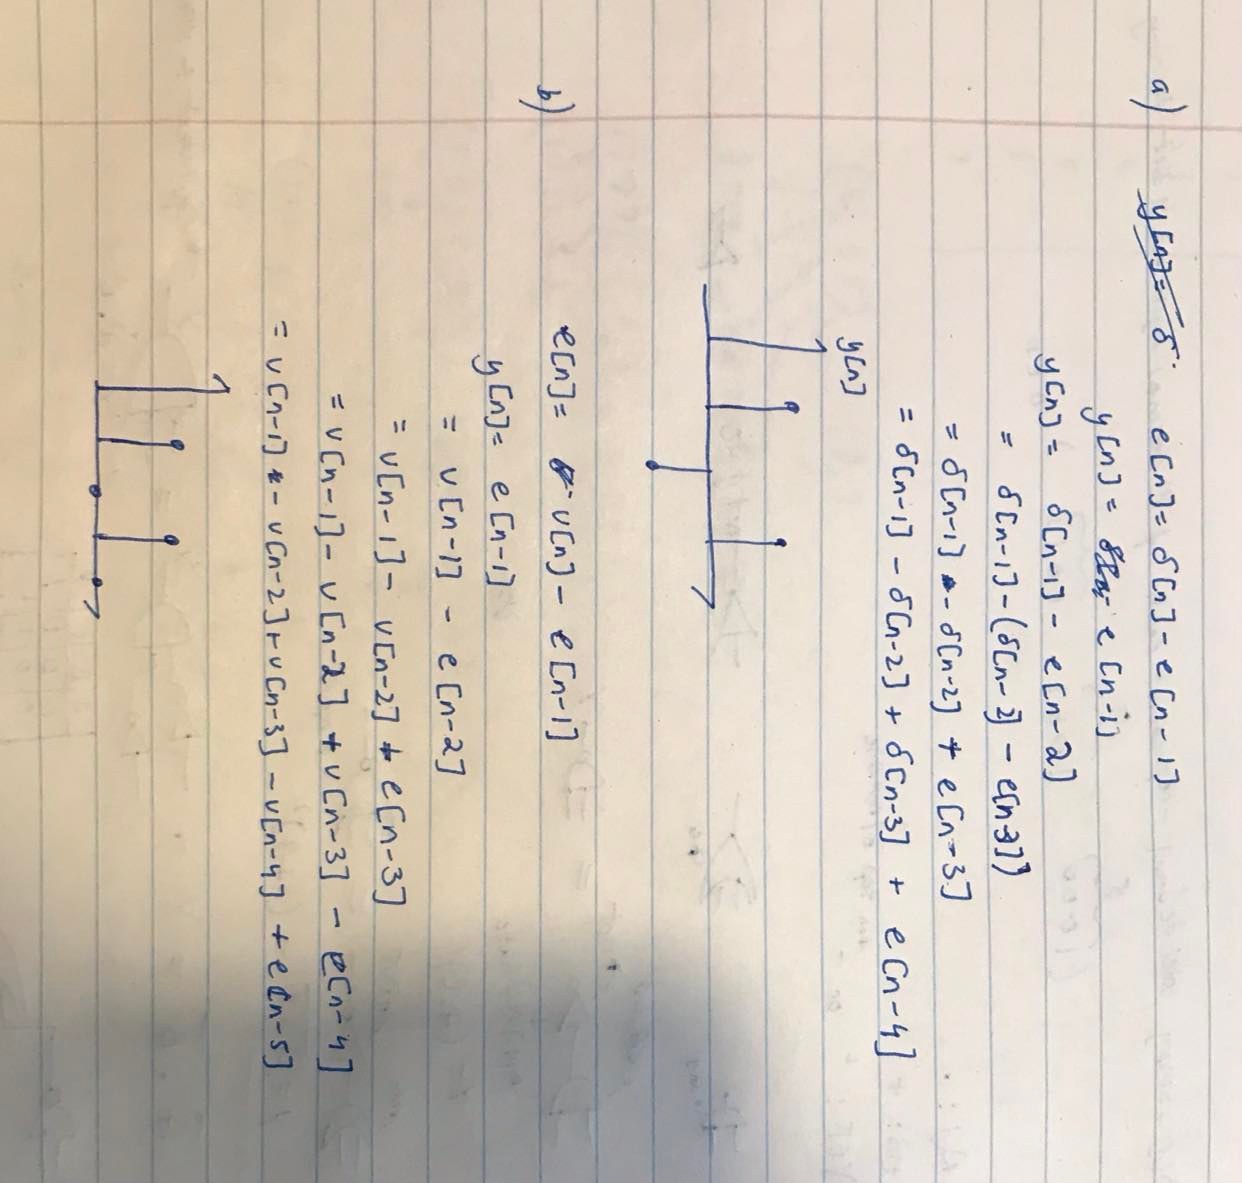 a) y[n]= δ e[n]= δ[n]- e[n-1]
y[n] = e[n-1]
y[n] = δ[n-1] - e[n-2]
= δ[n-1]-(δ[n-2] - e[n-3])
= δ[n-1] - δ[n-2] + e[n-3]
= δ[n-1] - δ[n-2] + δ[n-3] + e[n-4]
y[n]
b) e[n]= v[n] - e[n-1]
y[n]= e[n-1]
= v[n-1] - e[n-2]
= v[n-1] - v[n-2] + e[n-3]
= v[n-1]- v[n-2] + v[n-3] - e[n-4]
= v[n-1] - v[n-2]+v[n-3] -v[n-4] + e[n-5]